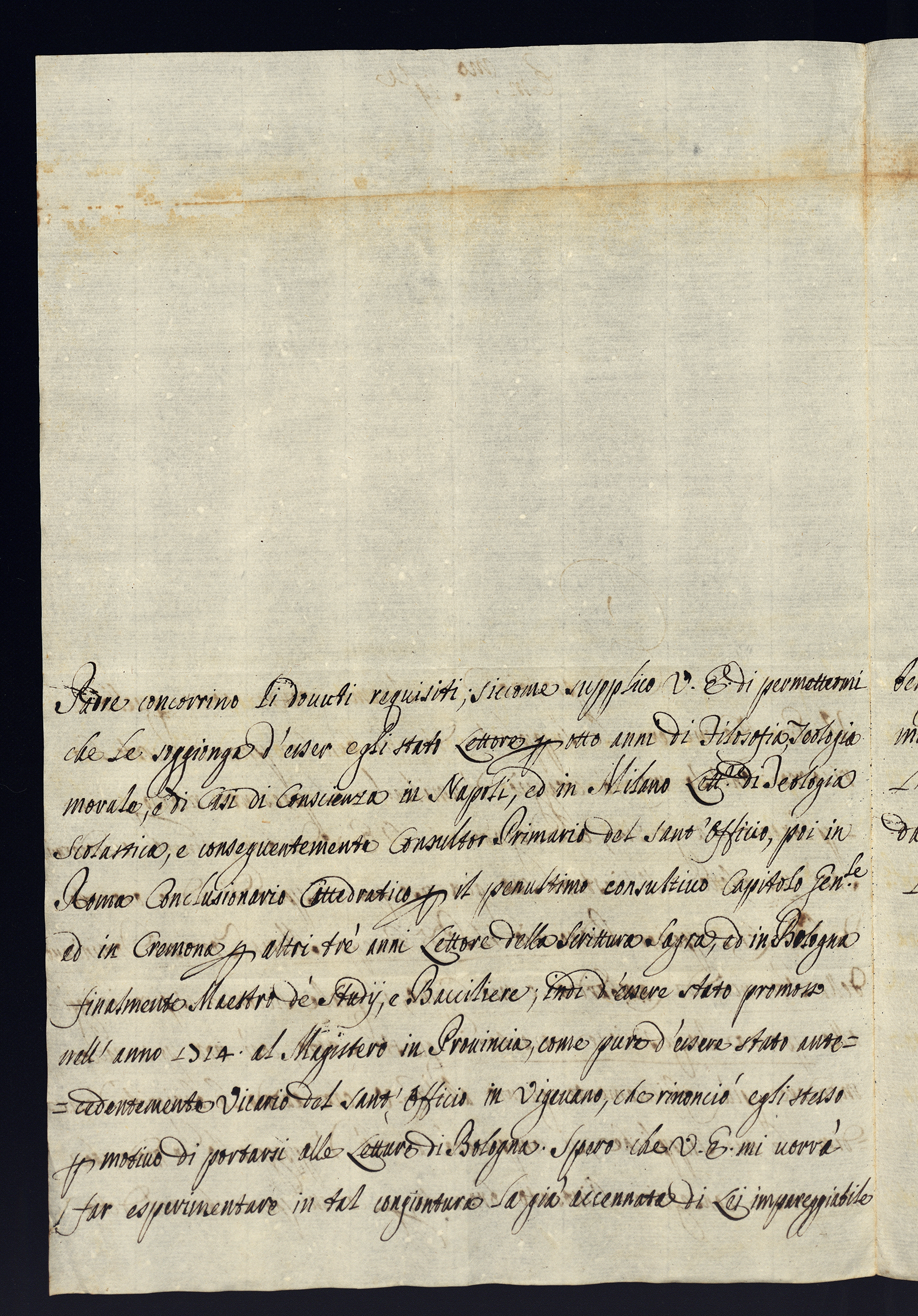 Padre concorrino li douuti requisiti; siccome supplico V. E. di permettermi
che Le soggionga d'esser egli stato Lettore p otto anni di Filosofia, Teologia
morale, e di Casi di Conscienza in Napoli, ed in Milano Lett.re di Teologia
Scolastica, e conseguentemente Consultor Primario del Sant'Officio, poi in
Roma Conclusionario Cattedratico p il penultimo consultiuo Capitolo Gen.le
ed in Cremona p altri trè anni Lettore della Scrittura Sagra, ed in Bologna
finalmente Maestro dè Studij, e Bacciliere; indi d'essere stato promosso
nell'anno 1724. al Magistero in Prouincia, come pure d'essere stato ante=
=cedentemente Vicario del Sant'Officio in Vigeuano, che rinonciò egli stesso
p motiuo di portarsi alle Letture di Bologna. Spero che V. E. mi uorrà
far esperimentare in tal congiontura la già accennata di Lei impareggiabile